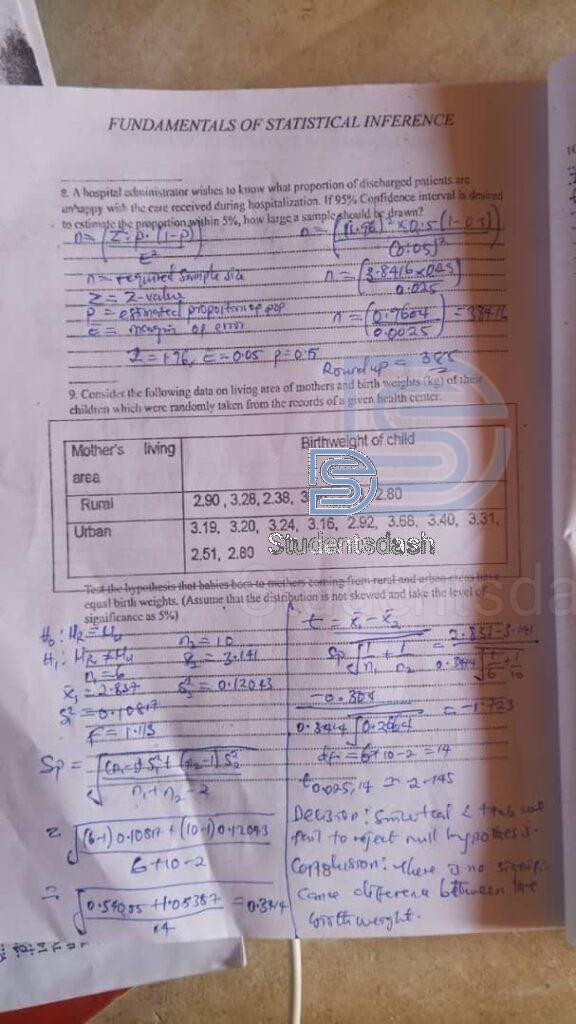 FUNDAMENTALS OF STATISTICAL INFERENCE
8. A hospital administrator wishes to know what proportion of discharged patients are
unhappy with the care received during hospitalization. If 95% Confidence interval is desired
to estimate the proportion within 5%, how large a sample should be drawn?
n = (Z² · p · (1-p) / E²)
n = required sample size
Z = Z-value
p = estimated proportion of pop
e = margin of error
Z = 1.96, E = 0.05 p = 0.5
n = ((1.96)² × 0.5 (1-0.5) / (0.05)²)
n = (3.8416 × 0.25 / 0.025)
n = (0.9604 / 0.0025) = 384.16
Round up = 385
9. Consider the following data on living area of mothers and birth weights (kg) of their
children which were randomly taken from the records of a given health center.
Mother's living area
Birthweight of child
Rural
2.90 , 3.28, 2.38, 2.80
Urban
3.19, 3.20, 3.24, 3.16, 2.92, 3.68, 3.40, 3.31,
2.51, 2.80
Studentsdash
Test the hypothesis that babies born to mothers coming from rural and urban areas have
equal birth weights. (Assume that the distribution is not skewed and take the level of
significance as 5%)
H₀ : μR = μu
H₁ : μR ≠ μu
n₁ = 6
x̄₁ = 2.837
S₁² = 0.10817
F = 1.113
n₂ = 10
x̄₂ = 3.141
S₂² = 0.12043
Sp = √((n₁-1) S₁² + (n₂-1) S₂² / n₁ + n₂ - 2)
= √((6-1) 0.10817 + (10-1) 0.12043 / 6+10-2)
= √(0.54085 + 1.08387 / 14) = 0.3414
t = x̄₁ - x̄₂ / Sp √(1/n₁ + 1/n₂) = 2.837-3.141 / 0.3414 √(1/6 + 1/10)
-0.304 / 0.3414 √0.2664 = -1.723
df = 6+10-2 = 14
t0.025, 14 = 2.145
Decision: Since tcal < ttab we
fail to reject null hypothesis.
Conclusion: There is no signifi-
cance difference between the
birthweight.